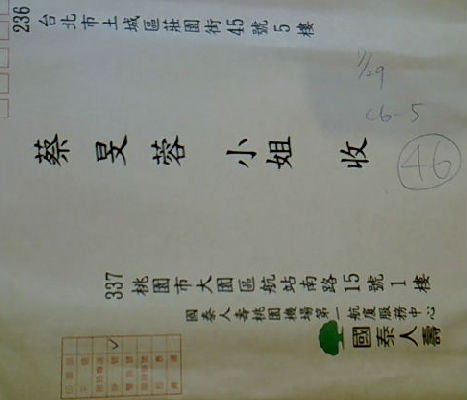 236
台北市土城區莊園街45號5樓
蔡旻蓉 小姐 收
7/29
C6-5
46
337
桃園市大園區航站南路15號1樓
國泰人壽桃園機場第一航廈服務中心
國泰人壽